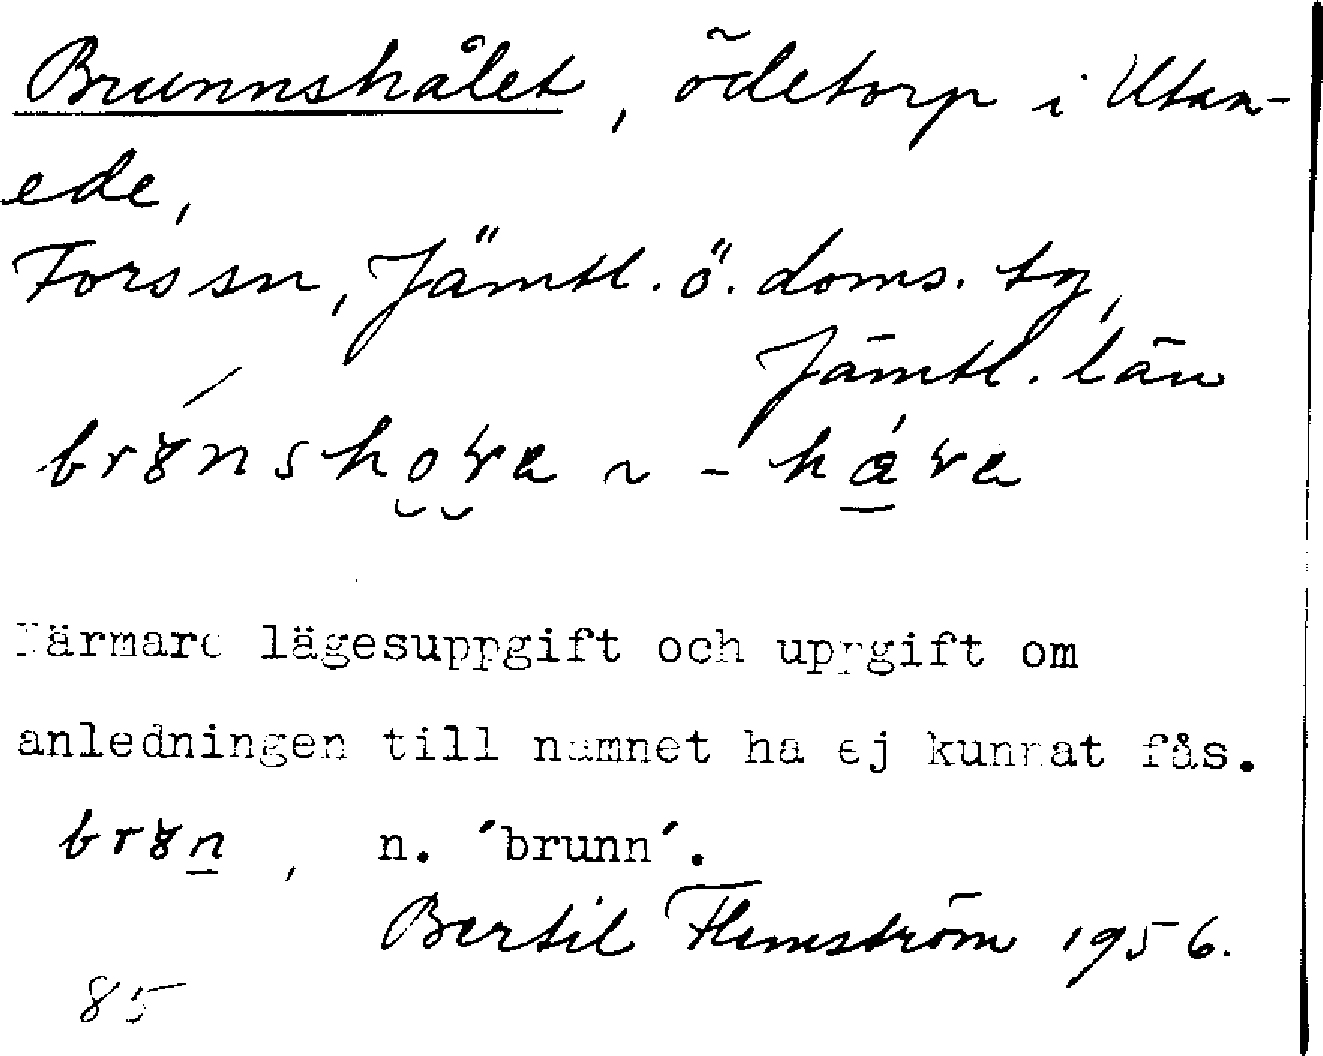 Brunnshålet, ödetorp i Utan-
ede,
Forssn, Jämtl. ö. doms. tg,
Jämtl. län
Närmare lägesuppgift och uppgift om
anledningen till namnet ha ej kunnat fås.
n. ´brunn´.
Bertil Flemström 1956.
85